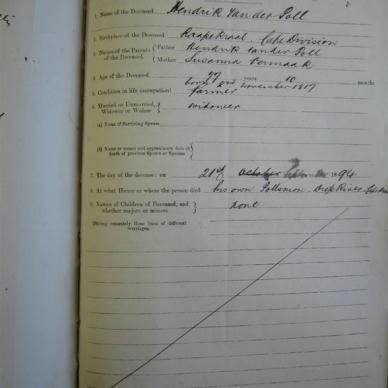 1. Name of the Deceased Hendrik van der Poll
2. Birthplace of the Deceased Kraaifontein Cape Division
3. Names of the Parents of the Deceased { Father Hendrik van der Poll
Mother Susanna Vermaak
4. Age of the Deceased 77 years 10 months
born 2nd November 1817
5. Condition in life (occupation) farmer
6. Married or Unmarried, Widower or Widow { widower
(a) Name of Surviving Spouse
(b) Name or names and approximate date of death of previous Spouse or Spouses {
7. The day of the decease: on 21st October 1894
8. At what House or where the person died his own Diep River
9. Names of Children of Deceased, and whether majors or minors } none
(Stating separately those born of different marriages).